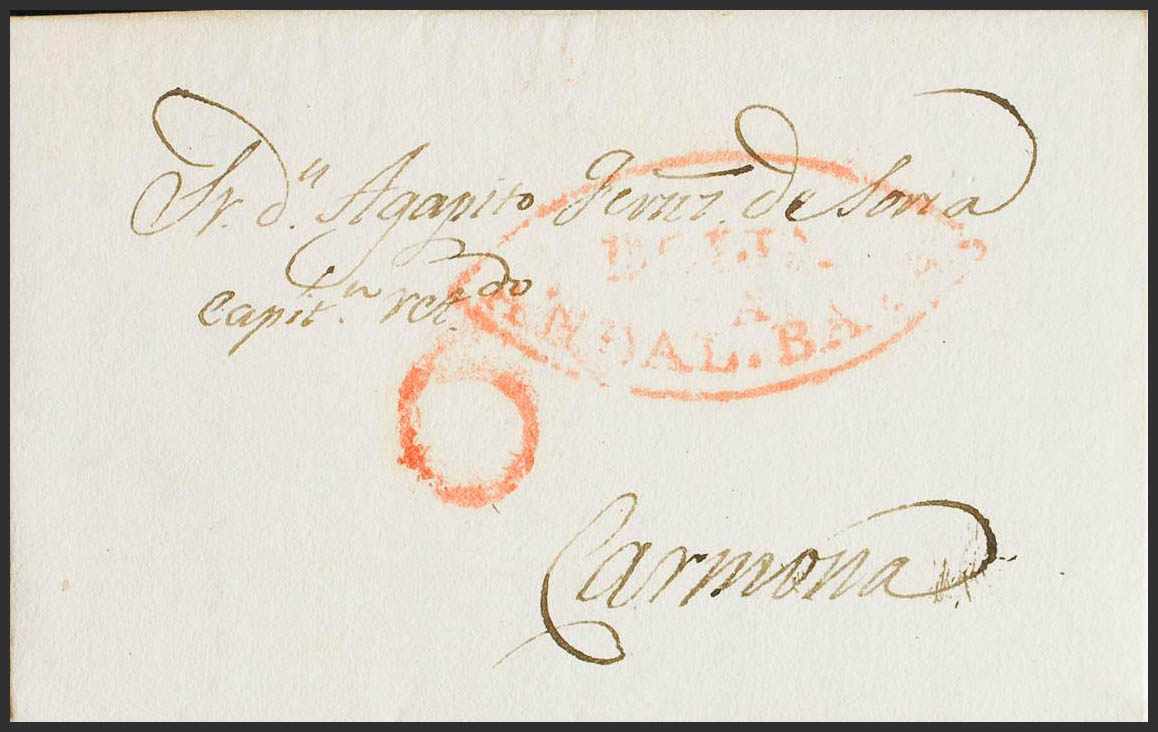 Sr. d.n Agapito Fernz. de Soria
Capit.n ret.do
ANDAL.BAXA
Carmona